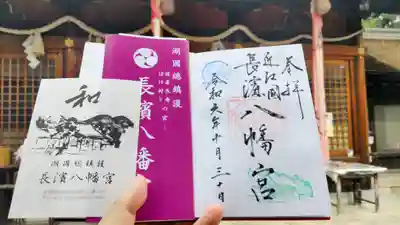 和
湖國總鎮護
長濱八幡宮
湖國總鎮護
長濱八幡
奉拝
近江國
長濱八幡宮
令和元年十月三十日